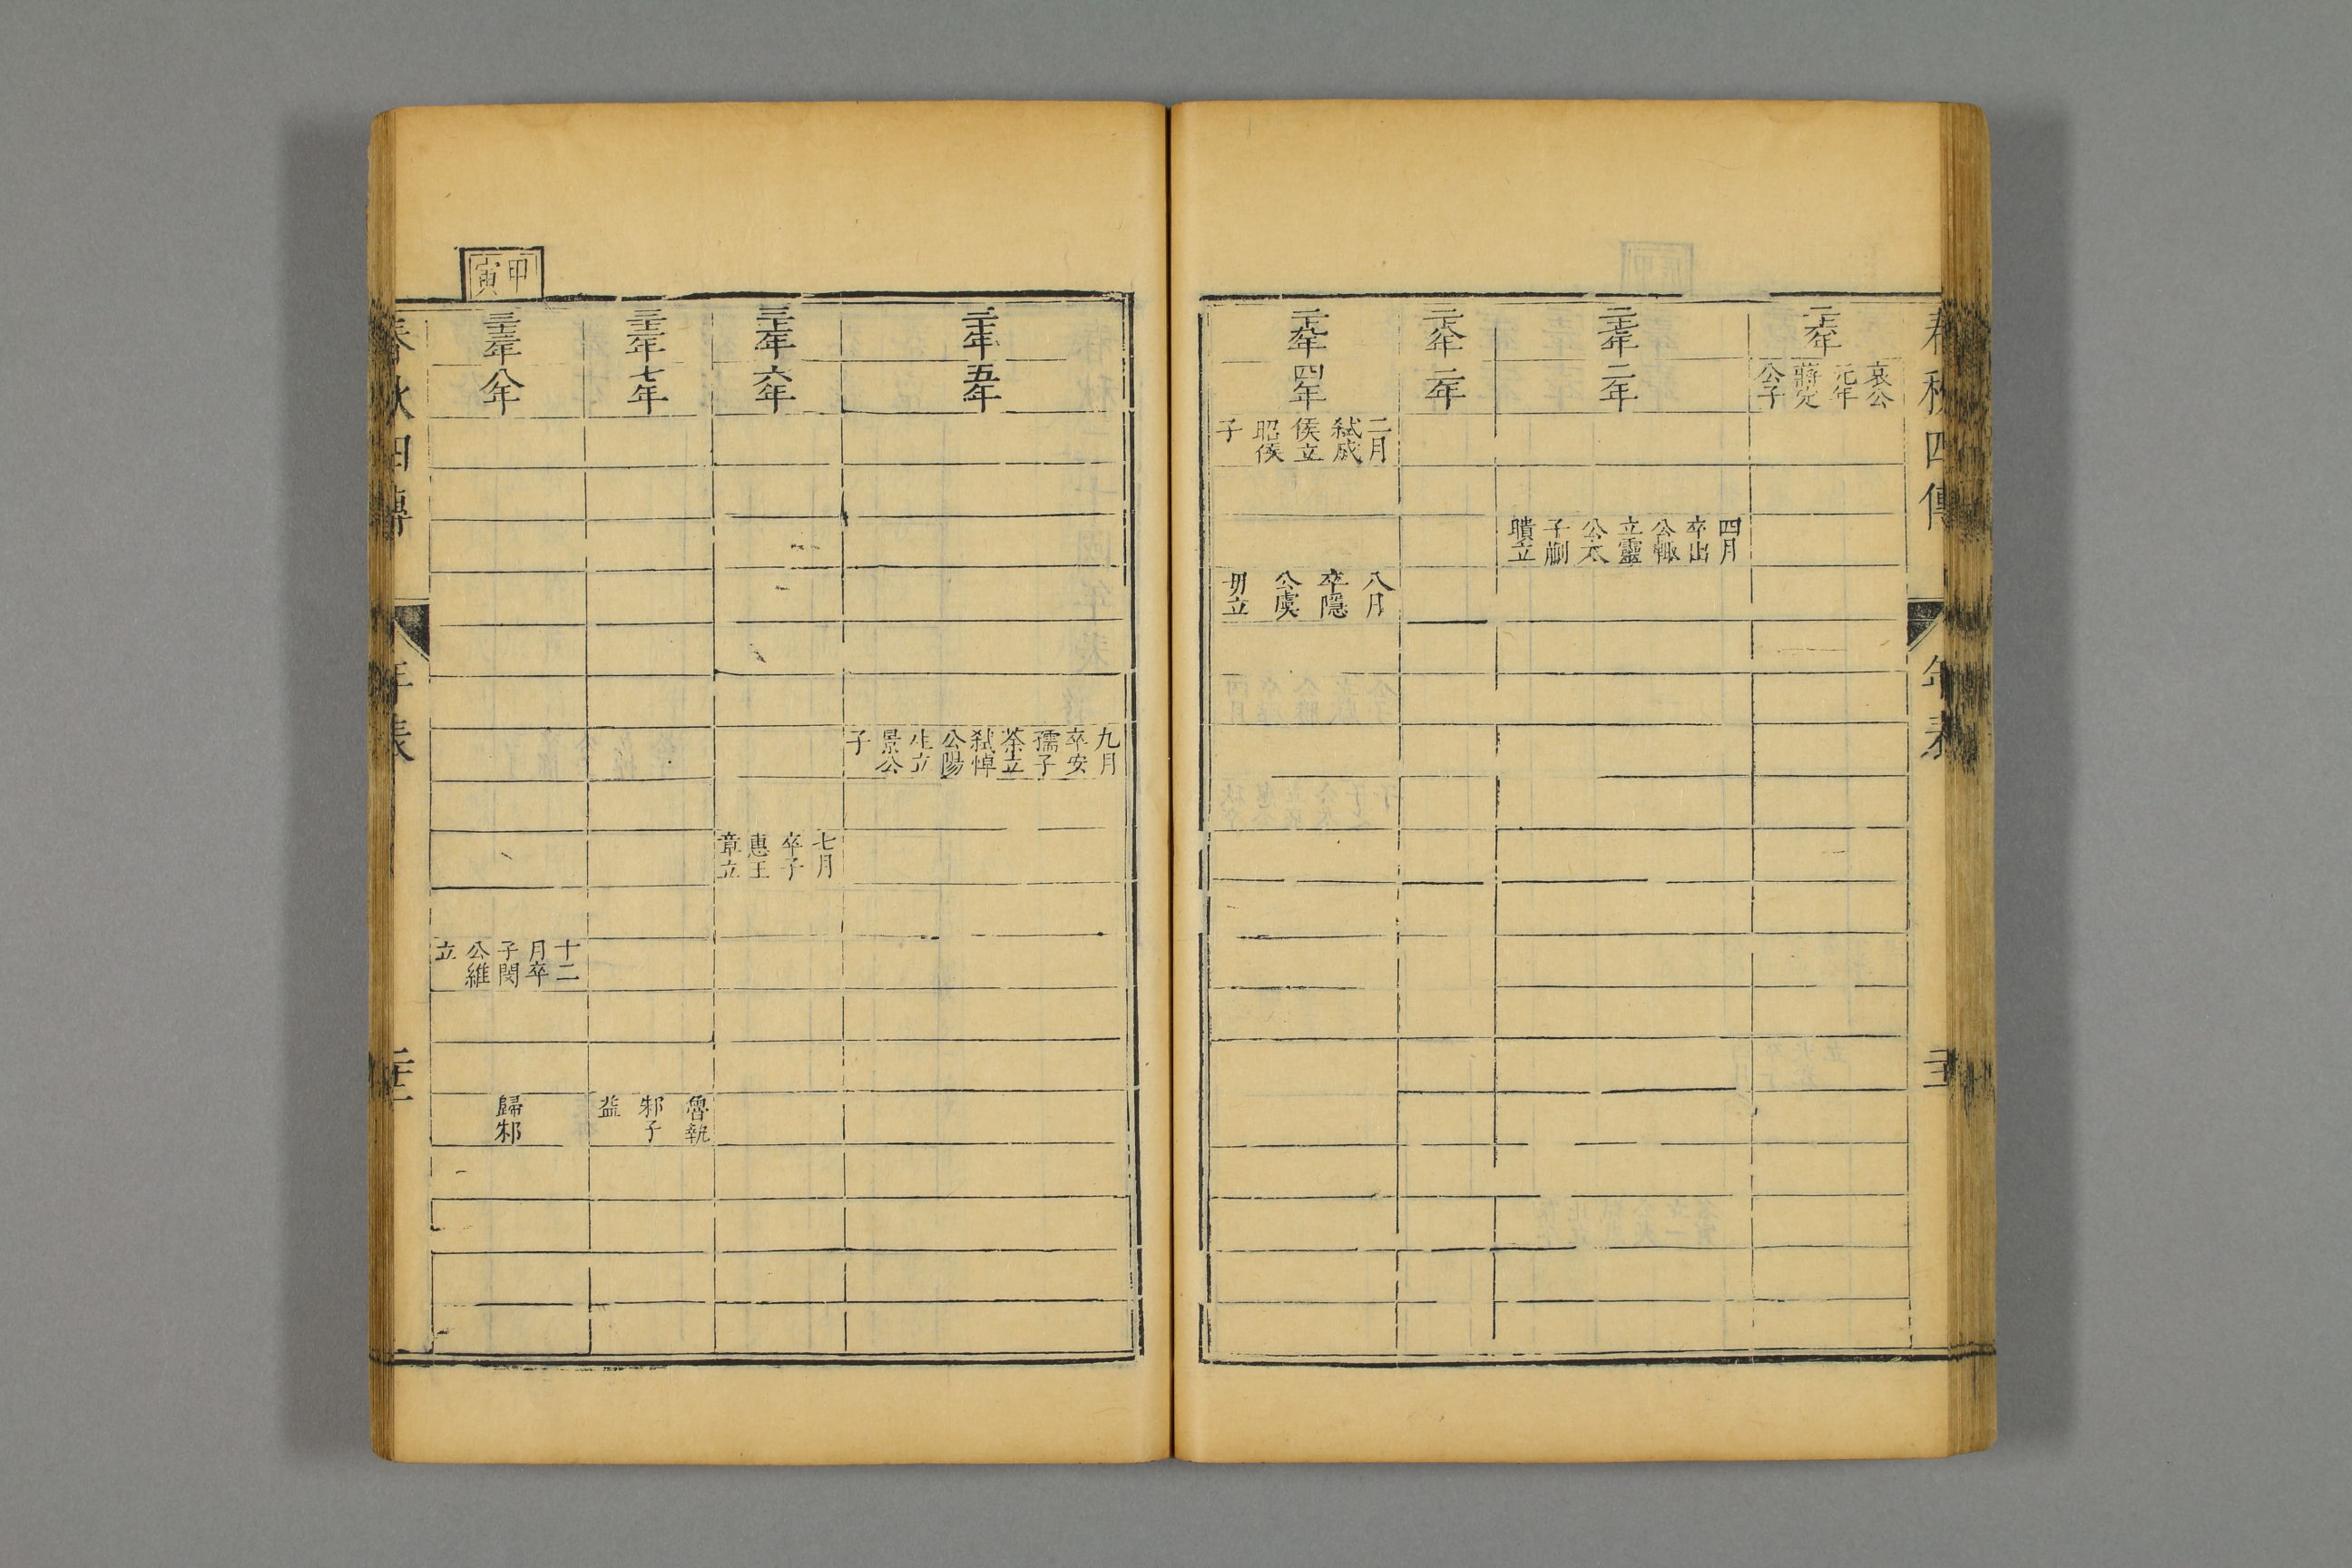 春秋四傳
年表
二十六年
哀公
元年
蔣定
公子
二十七年
二年
四月
卒出
公輙
立靈
公太
子蒯
聵立
二十八年
三年
二十九年
四年
二月
弒成
侯立
昭侯
子
八月
卒隱
公虞
毋立
三十年
五年
九月
卒安
孺子
荼立
弒悼
公陽
生立
景公
子
三十一年
六年
七月
卒子
惠王
章立
三十二年
七年
魯執
邾子
益
甲寅
三十三年
八年
十二
月卒
子閔
公維
立
歸邾
春秋四傳
年表